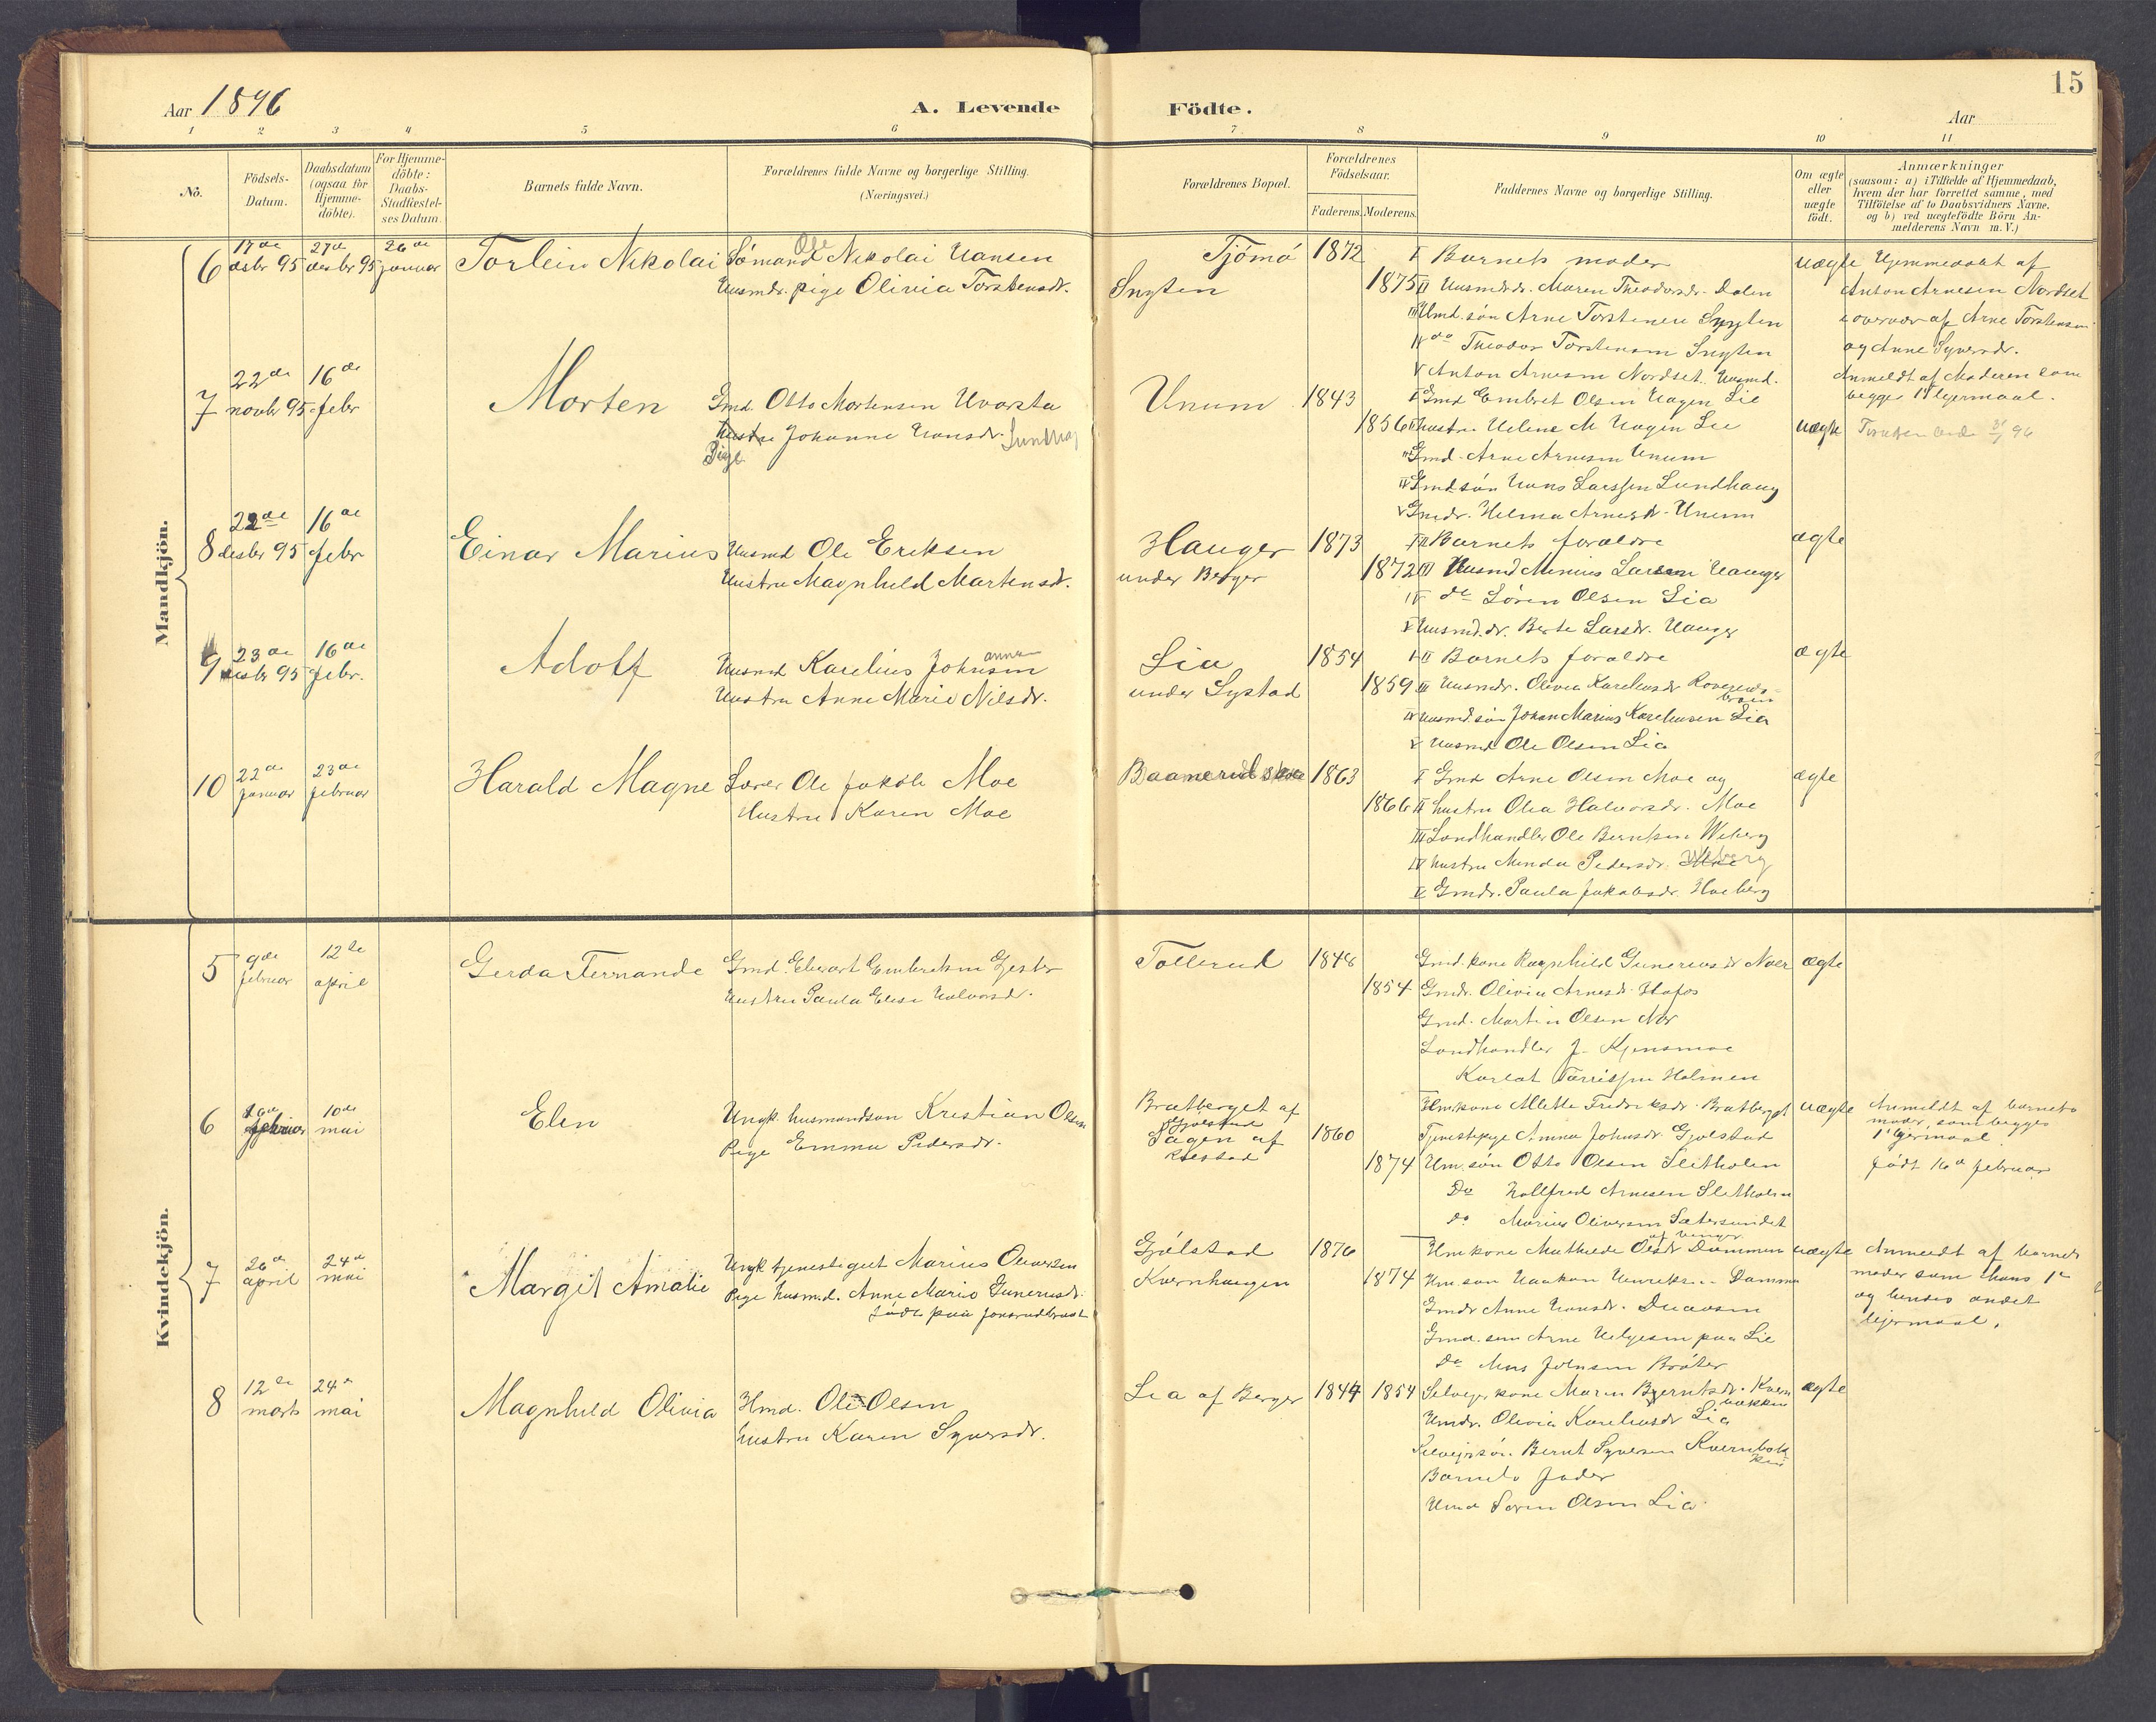 15
Aar 1896
A. Levende Födte.
Aar
1 2 3 4 5 6 7 8 9 10 11
No.
Födsels-Datum.
Daabsdatum (ogsaa for Hjemme-döbte).
For Hjemme-döbte: Daabs-Stadfæstel-ses Datum.
Barnets fulde Navn.
Forældrenes fulde Navne og borgerlige Stilling.
(Næringsvei.)
Forældrenes Bopæl.
Forældrenes Födselsaar.
Faderens. Moderens.
Faddernes Navne og borgerlige Stilling.
Om ægte eller uægte födt.
Anmærkninger
(saasom: a) i Tilfælde af Hjemmedaab,
hvem der har forrettet samme, med
Tilföielse af to Daabsvidners Navne,
og b) ved uægtefödte Börn An-
melderens Navn m. V.)
Mandkjön.
6
17de desbr 95
27de desbr 95
26de januar
Torlein Nikolai
Sømand Ole Nikolai Hansen
Husmdr. pige Olivia Torstensdr.
Tjömö
Sngten
1872
1875
I Barnets moder
II Husmdsdr. Maren Theodorsdr. Dalen
III Hmd. søn Arne Torstensen Sngten
IV do Theodor Torstensen Sngten
V Anton Arnesen Nordset. Husmd.
uægte
Hjemmedøbt af
Anton Arnesen Nordset
i overvær af Arne Torstensen
og Anne Syversdr.
Anmeldt af Moderen som
begges 1st lejermaal.
7
22de novbr 95
16de febr
Morten
Gmd. Otto Mortensen Uvorsta
hustru Johanne Hansdr. Lundhag
Pige
Unum
1843
1856
I Gmd Embret Olsen Hagen Lie
II hustru Helene M Hagen Lie
III Gmd. Arne Arnesen Unum
IV Gmdsøn Hans Larssen Lundhaug
V Gmdr. Helma Arnesdr. Unum
uægte
96
8
22de desbr 95
16de febr
Einar Marius
Husmd Ole Eriksen
Hustru Magnhild Martensdr.
Hauger
under Berger
1873
1872
I II Barnets forældre
III Husmd Minius Larsen Hauger
IV do Søren Olsen Lia
V Husmd.dr. Berte Larsdr. Hauger
ægte
9
23de desbr 95
16de febr.
Adolf
Husmd Karelius Johnsen
Hustru Anne Marie Nilsdr.
Lia
under Systad
1854
1859
I II Barnets forældre
III Husmdr. Olivia Kareliusdr
IV Husmd.søn Johan Marius Kareliusen Lia
V Husmd Ole Olsen Lia
ægte
10
22de januar
23de februar
Harald Magne
Lærer Ole Jakob Moe
Hustru Karen Moe
Baamerud skole
1863
1866
I Gmd Arne Olsen Moe og
II hustru Olia Halvorsdr. Moe
III Landhandler Ole Berntsen Weberg
IV hustru Minda Pedersdr. Weberg
V Gmdr. Paula Jakobsdr. Hoeberg
ægte
Kvindekjön.
5
9de februar
12te april
Gerda Fernande
Gmd. Edvart Embretsen Gjester
Hustru Paula Elise Halvorsd.
Tollerud
1848
1854
Gmd. kone Ragnhild Gunerusdr Noer
Gmdr. Olivia Arnesdr. Hofos
Gmd. Martin Olsen Nor
Landhandler J. Kjensmoe
Karlot Tarrisen Holmen
ægte
6
10de mai
Elen
Ungk. husmandsøn Kristian Olsen
Pige Emma Pedersdr.
Bratberget af
Gjølstad
Sagen af
Rolstad
1860
1874
Hmkone Allette Fredriksdr. Bratberget
Tjenestepige Anna Johnsdr. Gjolstad
Hm. søn Otto Olsen Sletholen
Do Hallfred Arnesen Sletholen
do Marius Oliversen Sætersundet
uægte
Anmeldt af barnets
moder, som begges
1st lejermaal
født 16d februar
7
26de april
24de mai
Margit Amalie
Ungk. tjenestegut Marius Oliversen
Pige husmd. Anne Marie Gunerusdr.
født paa Jonsrudbraat
Gjølstad
Kvernhaugen
1876
1874
Hmkone Mathilde Olsdr Dammen
Hm søn Haakon Henriksen Dammen
Gmdr Anne Hansdr.
Gmd. søn Arne Helgesen paa Lie
Do Johnsen Bråter
uægte
Anmeldt af barnets
moder som hans 1ste
og hendes andet
lejermaal.
8
12te marts
24de mai
Magnhild Olivia
Hmd. Ole Olsen
hustru Karen Syversdr.
Lia af Berger
1844
1854
Selvejerkone Maren Berntsdr. Kvernbakken
Hmdr. Olivia Kareliusdr Lia
Selvejersøn. Bernt Syversen Kvernbakken
Barnets fader
Hmd Søren Olsen Lia.
ægte